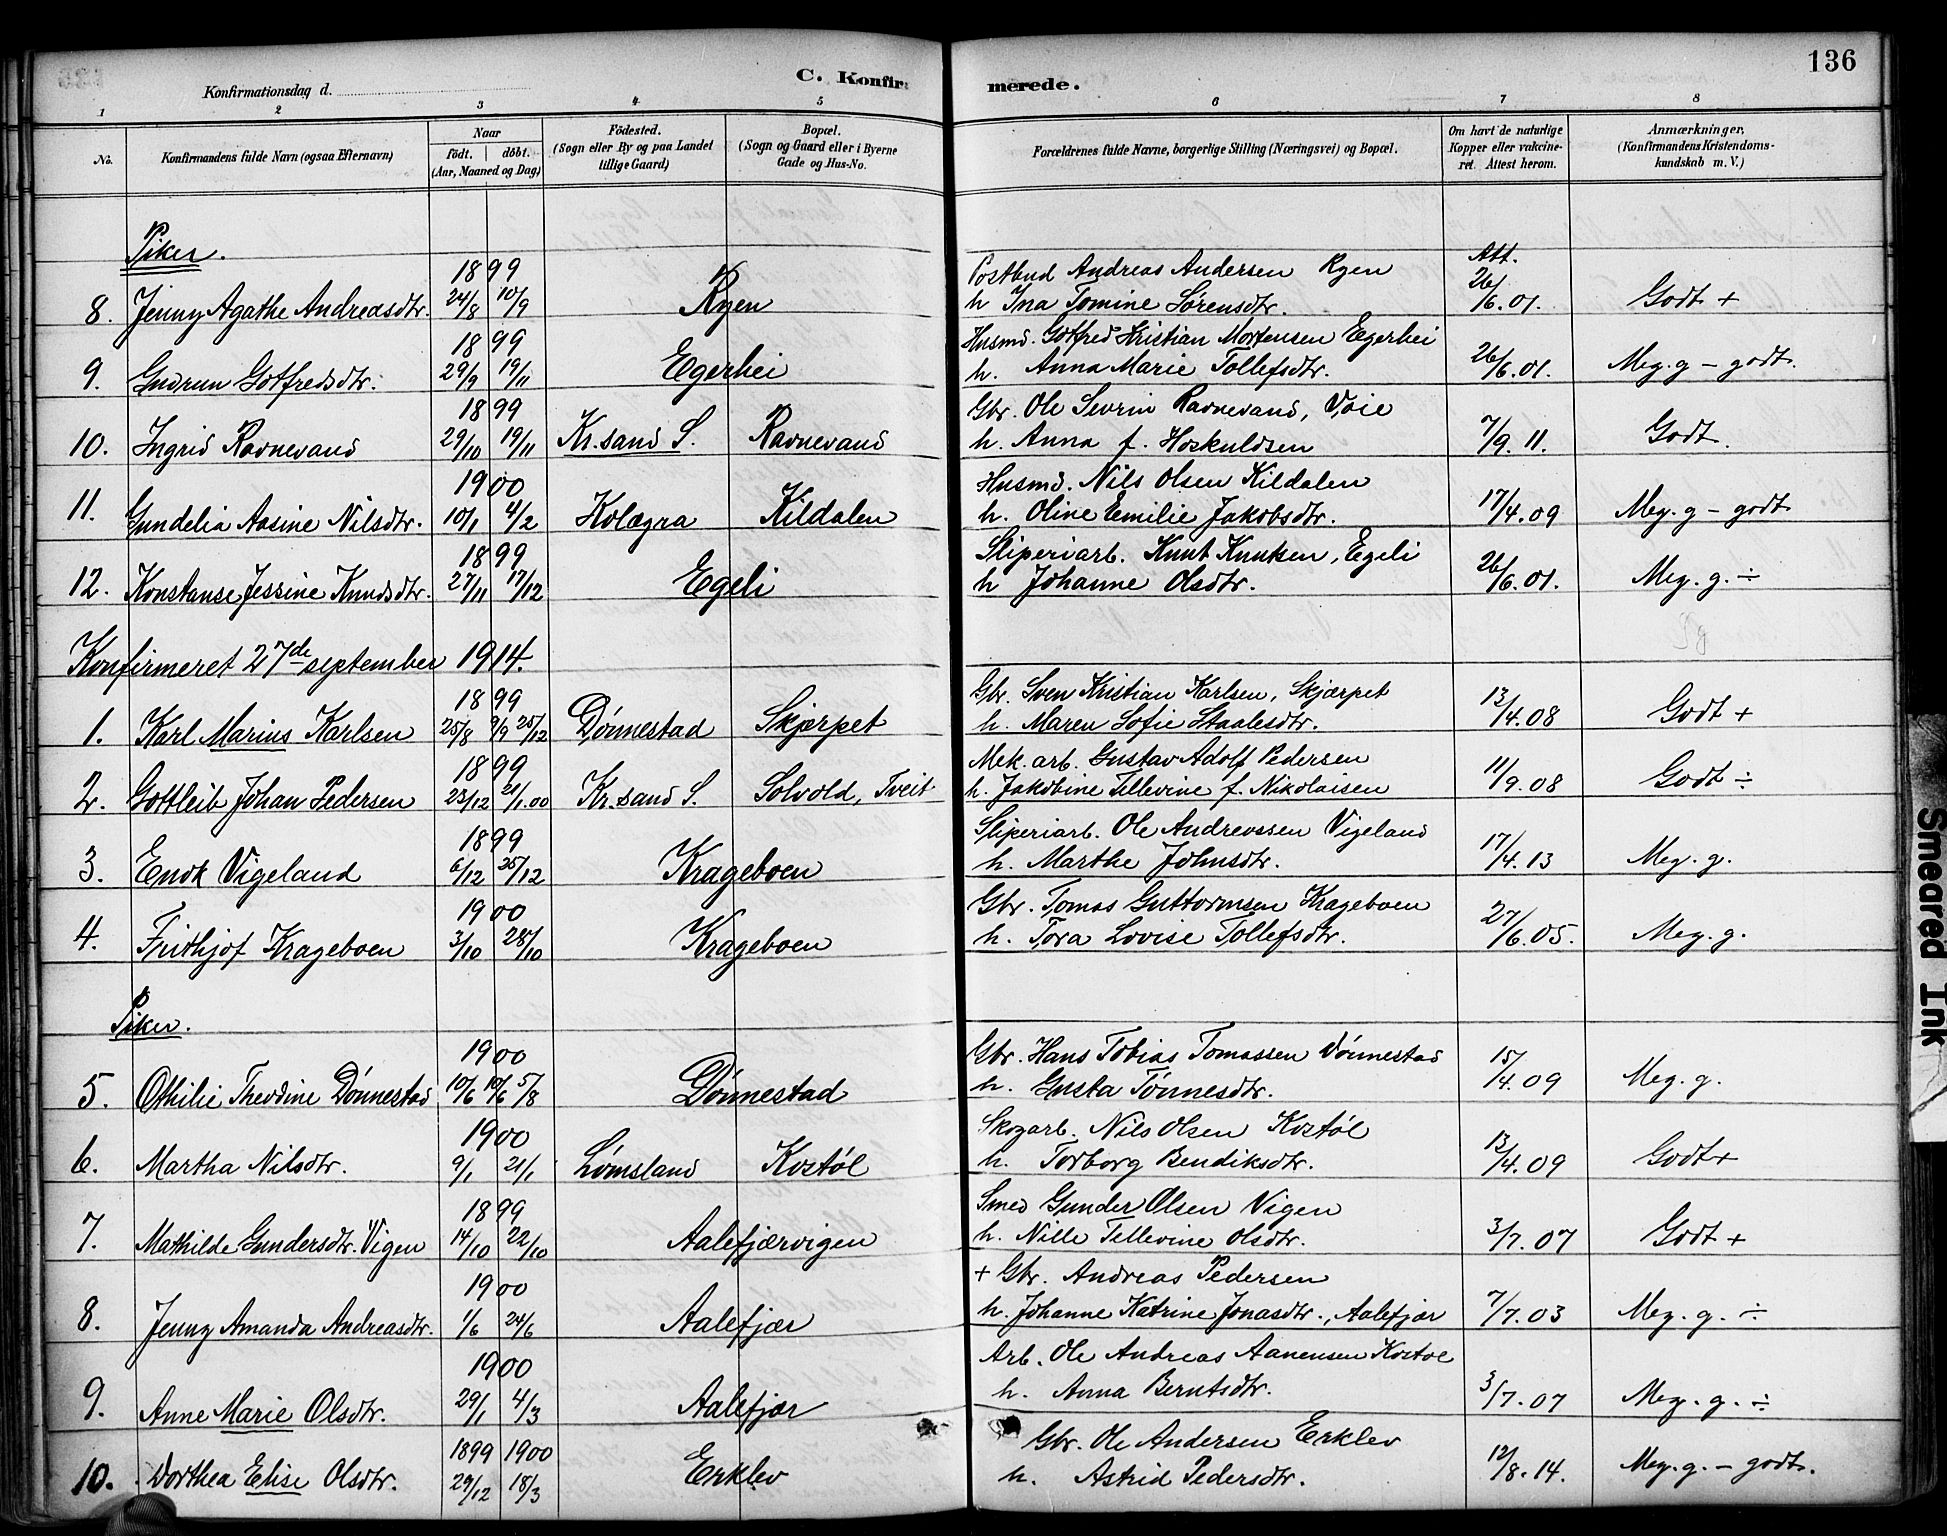 136
C. Konfirmerede.
Konfirmationsdag d.
1 2 3 4 5 6 7 8
No.
Konfirmandens fulde Navn (ogsaa Efternavn)
Naar
født. døbt.
(Aar, Maaned og Dag)
Födested.
(Sogn eller By og paa Landet
tillige Gaard)
Bopæl.
(Sogn og Gaard eller i Byerne
Gade og Hus-No.
Forældrenes fulde Navne, borgerlige Stilling (Næringsvei) og Bopæl.
Om havt de naturlige
Kopper eller vakcine-
ret. Attest herom.
Anmærkninger,
(Konfirmandens Kristendoms-
kundskab m. V.)
Piker.
1899 Postbud Andreas Andersen Ryen Att.
8. Jenny Agathe Andreasdtr. 24/8 10/9 Ryen h Ina Tomine Sørensdtr. 26/6.01. Godt +
1899 Husmd. Gotfred Kristian Mortensen Egerhei
9. Gudrun Gotfredsdtr. 29/9 19/11 Egerhei h. Anna Marie Tollefsdtr. 26/6.01. Meg. g – godt.
1899 Gbr. Ole Sevrin Ravnevand, Voie
10. Ingrid Ravnevand 29/10 19/11 Kr.sand S. Ravnevand h. Anna f. Hoskuldsen 7/9.11. Godt.
1900 Husmd. Nils Olsen Kildalen
11. Gundelia Aasine Nilsdtr. 10/1 4/2 Kolægra Kildalen h. Oline Emilie Jakobsdtr. 17/4.09 Meg. g – godt
1899 Sliperiarb. Knut Knutsen, Egeli
12. Konstanse Jessine Knudsdtr. 27/11 17/12 Egeli h Johanne Olsdtr. 26/6.01. Meg. g. ÷
Konfirmeret 27de september 1914.
1899 Gbr. Sven Kristian Karlsen, Skjærpet
1. Karl Marius Karlsen 25/8 9/9 25/12 Dønnestad Skjærpet h. Maren Sofie Staalesdtr. 13/4.08 Godt +
1899 Mek. arb. Gustav Adolf Pedersen
2. Gottleib Johan Pedersen 23/12 21/1.00 Kr.sand S. Solvold, Tveit h. Jakobine Tellevine f. Nikolaisen 11/9.08 Godt ÷
1899 Sliperiarb. Ole Andreassen Vigeland
3. Enok Vigeland 6/12 25/12 Krageboen h. Marthe Johnsdtr. 17/4.13 Meg. g.
1900 Gbr. Tomas Guttormsen Krageboen
4. Frithjof Krageboen 3/10 28/10 Krageboen h. Tora Lovise Tollefsdtr. 27/6.05. Meg. g.
Piker.
1900 Gbr. Hans Tobias Tomassen Dønnestad
5. Othilie Theodine Dønnestad 10/6 10/6 5/8 Dønnestad h. Gusta Tønnesdtr. 15/4.09 Meg. g.
1900 Skogarb. Nils Olsen Kostøl
6. Martha Nilsdtr. 9/1 21/1 Lømsland Kostøl h. Torborg Bendiksdtr. 13/4.09 Godt +
1899 Smed Gunder Olsen Vigen
7. Mathilde Gundersdtr. Vigen 14/10 22/10 Aalefjærvigen h. Nille Tellevine Olsdtr. 3/7.07 Godt +
1900 + Gbr. Andreas Pedersen
8. Jenny Amanda Andreasdtr. 1/6 24/6 Aalefjær h. Johanne Katrine Jonasdtr., Aalefjær 7/7.03 Meg. g. ÷
1900 Arb. Ole Andreas Aanensen Kostøl
9. Anne Marie Olsdtr. 29/1 4/3 Aalefjær h. Anna Berntsdtr. 3/7.07 Meg. g. ÷
1899 1900 Gbr. Ole Andersen Erklev
10. Dorthea Elise Olsdtr. 29/12 18/3 Erklev h. Astrid Pedersdtr. 12/8.14. Meg. g. – godt.
Smeared Ink